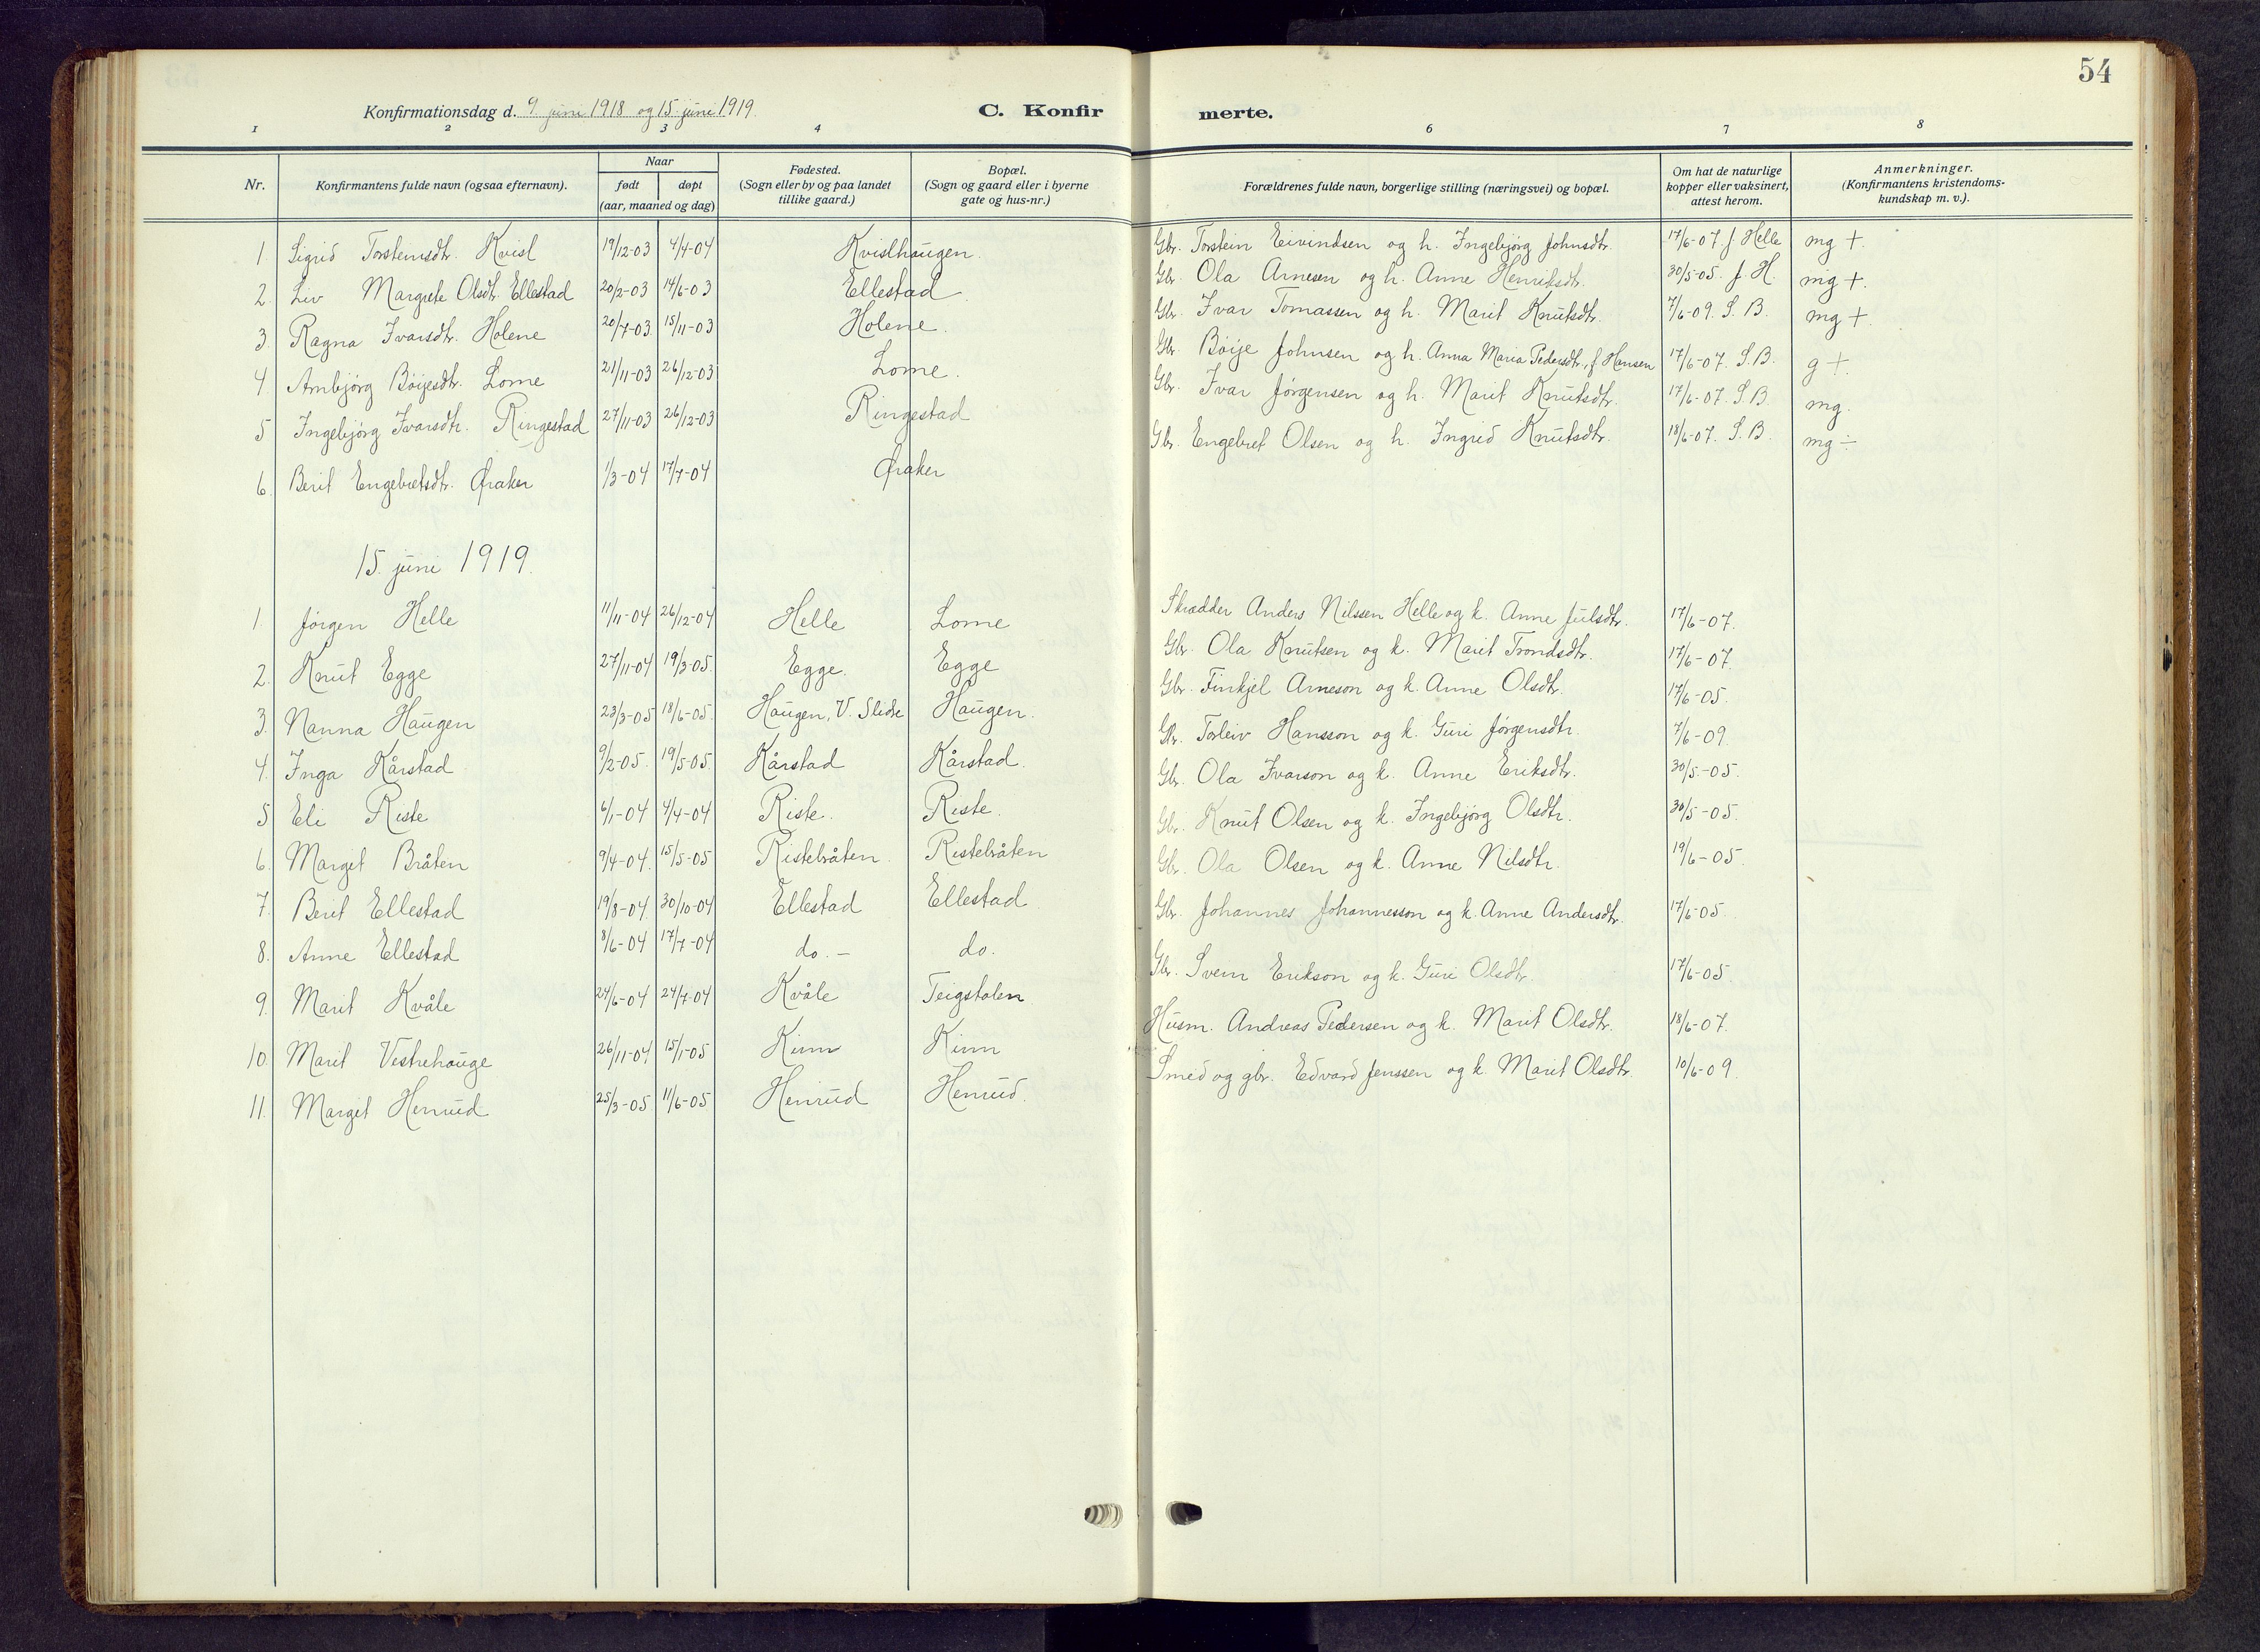 54
Konfirmationsdag d. 9. juni 1918 og 15. juni 1919. C. Konfirmerte.
1 2 3 4 6 7 8
Nr. Konfirmantens fulde navn (ogsaa efternavn). Naar født døpt (aar, maaned og dag) Fødested. (Sogn eller by og paa landet tillike gaard.) Bopæl. (Sogn og gaard eller i byerne gate og hus-nr.) Forældrenes fulde navn, borgerlige stilling (næringsvei) og bopæl. Om hat de naturlige kopper eller vaksinert, attest herom. Anmerkninger. (Konfirmantens kristendoms-kundskap m. v.).
1. Sigrid Torsteinsdtr. Kvisl 19/12-03 4/4-04 Kvislhaugen. Gbr. Torstein Eivindsen og h. Ingebjørg Johnsdtr. 17/6-07 J. Helle mg +.
2. Liv Margrete Olsdtr. Ellestad 20/2-03 14/6-03 Ellestad. Gbr. Ola Arnesen og h. Anne Henriksdtr. 30/5-05. J. H. mg +.
3. Ragna Ivarsdtr. Holene 20/7-03. 15/11-03 Holene. Gbr. Ivar Tomassen og h. Marit Knutsdtr. 7/6-09. S. B. mg +.
4. Arnbjørg Böijesdtr. Lome 21/11-03 26/12-03 Lome. Gbr. Böije Johnsen og h. Anna Maria Pedersdtr., f. Hansen 17/6-07. S. B. g +.
5 Ingebjørg Ivarsdtr. Ringestad 27/11-03 26/12-03 Ringestad Gbr. Ivar Jørgensen og h. Marit Knutsdtr. 17/6-07. S. B. mg.
6. Berit Engebretsdtr. Øraker 1/3-04 17/7-04 Øraker Gbr. Engebret Olsen og h. Ingrid Knutsdtr. 18/6-07. S. B. mg ÷
15. juni 1919.
1. Jørgen Helle 11/11-04 26/12-04 Helle Lome Skrædder Anders Nilssen Helle og k. Anne Julsdtr. 17/6-07.
2. Knut Egge 27/11-04 19/3-05. Egge. Egge Gbr. Ola Knutsen og k. Marit Trondsdtr. 17/6-07.
3. Nanna Haugen 23/3-05 18/6-05. Haugen, V. Slidre Haugen. Gbr. Finkjel Arneson og k. Anne Olsdtr. 17/6-05.
4. Inga Kårstad 9/2-05. 19/5-05. Kårstad Kårstad. Gbr. Torleiv Hansson og k. Guri Jørgensdtr. 7/6-09.
5 Eli Riste 6/1-04 4/4-04 Riste. Riste. Gbr. Ola Ivarson og k. Anne Eriksdtr. 30/5-05.
6. Marget Bråten 9/4-04. 15/5-05 Ristebråten Ristebråten Gbr. Knut Olsen og k. Ingebjørg Olsdtr. 30/5-05.
7. Berit Ellestad 19/8-04. 30/10-04 Ellestad Ellestad Gbr. Ola Olsen og k. Anne Nilsdtr. 19/6-05.
8. Anne Ellestad 8/6-04 17/7-04 do. - do. Gbr. Johannes Johannesson og k. Anne Andersdtr. 17/6-05.
9. Marit Kvåle 24/6-04 24/7-04 Kvåle Teigstolen Gbr. Svein Erikson og k. Guri Olsdtr. 17/6-05.
10. Marit Vestrehauge 26/11-04 15/1-05 Kinn Kinn Husm. Andreas Pedersen og k. Marit Olsdtr. 18/6-07.
11. Marget Henrud 25/3-05 11/6-05 Henrud Henrud. Smed og gbr. Edvard Jenssen og k. Marit Olsdtr. 10/6-09.